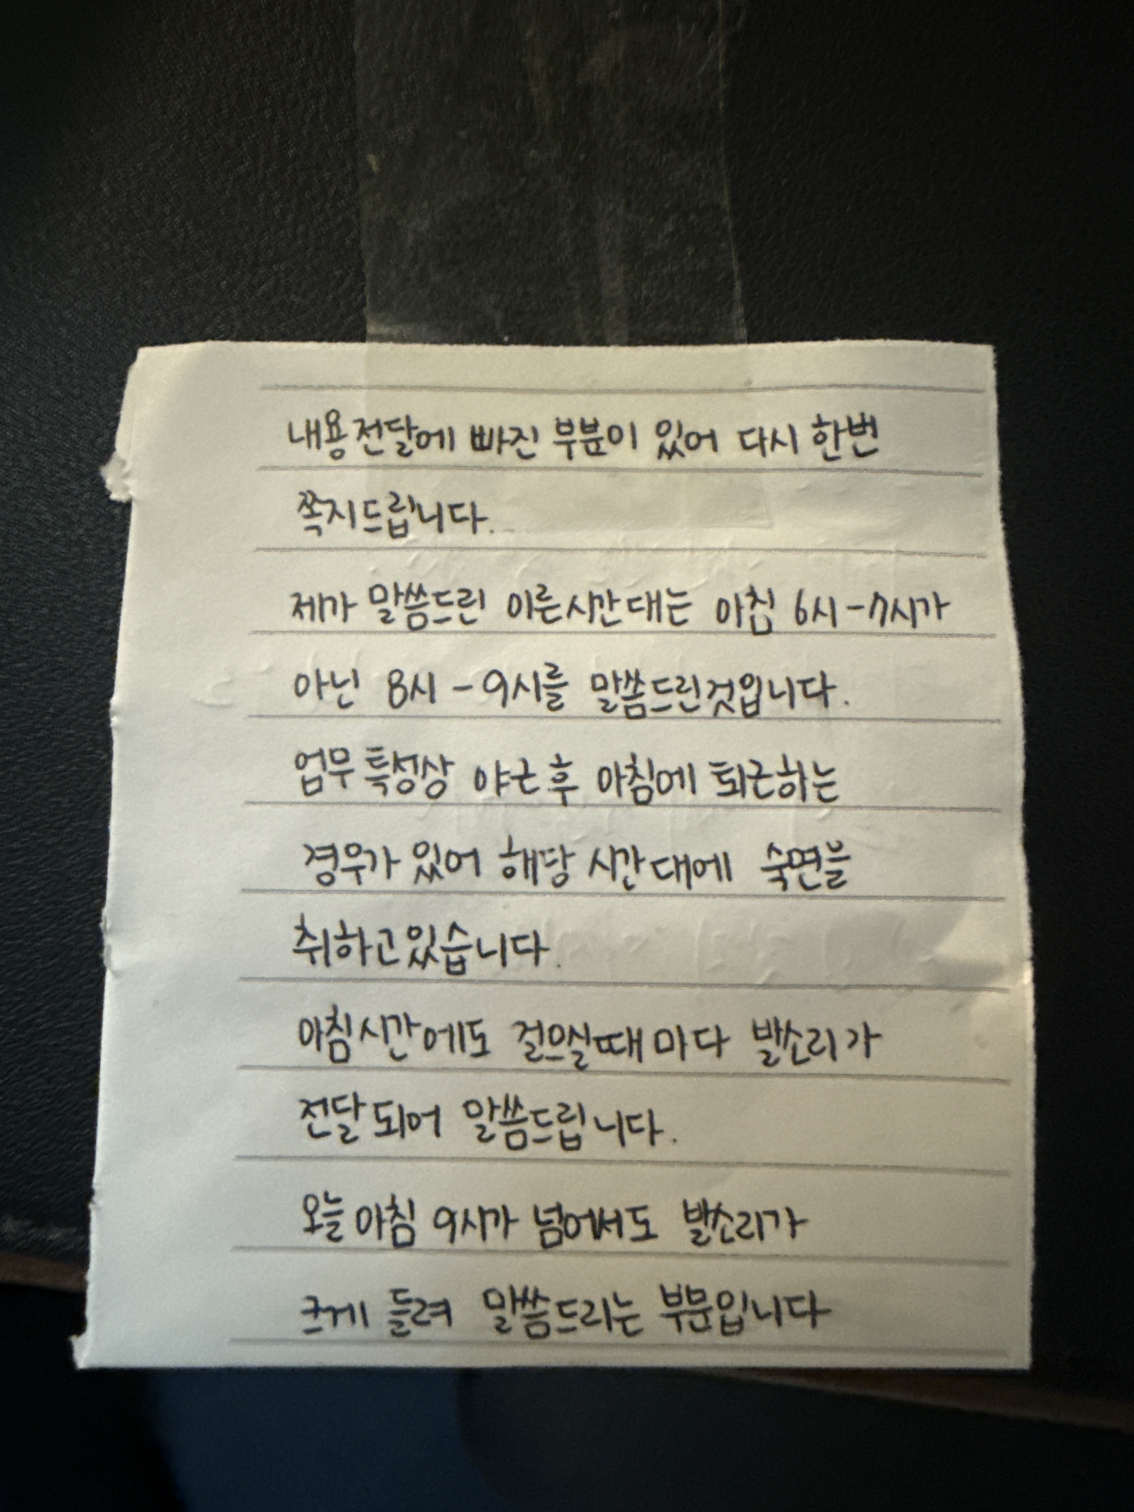 내용전달에 빠진 부분이 있어 다시 한번
쪽지드립니다.
제가 말씀드린 이른시간대는 아침 6시-7시가
아닌 8시-9시를 말씀드린것입니다.
업무 특성상 야근 후 아침에 퇴근하는
경우가 있어 해당 시간대에 숙면을
취하고있습니다.
아침시간에도 걸으실때마다 발소리가
전달되어 말씀드립니다.
오늘 아침 9시가 넘어서도 발소리가
크게 들려 말씀드리는 부분입니다